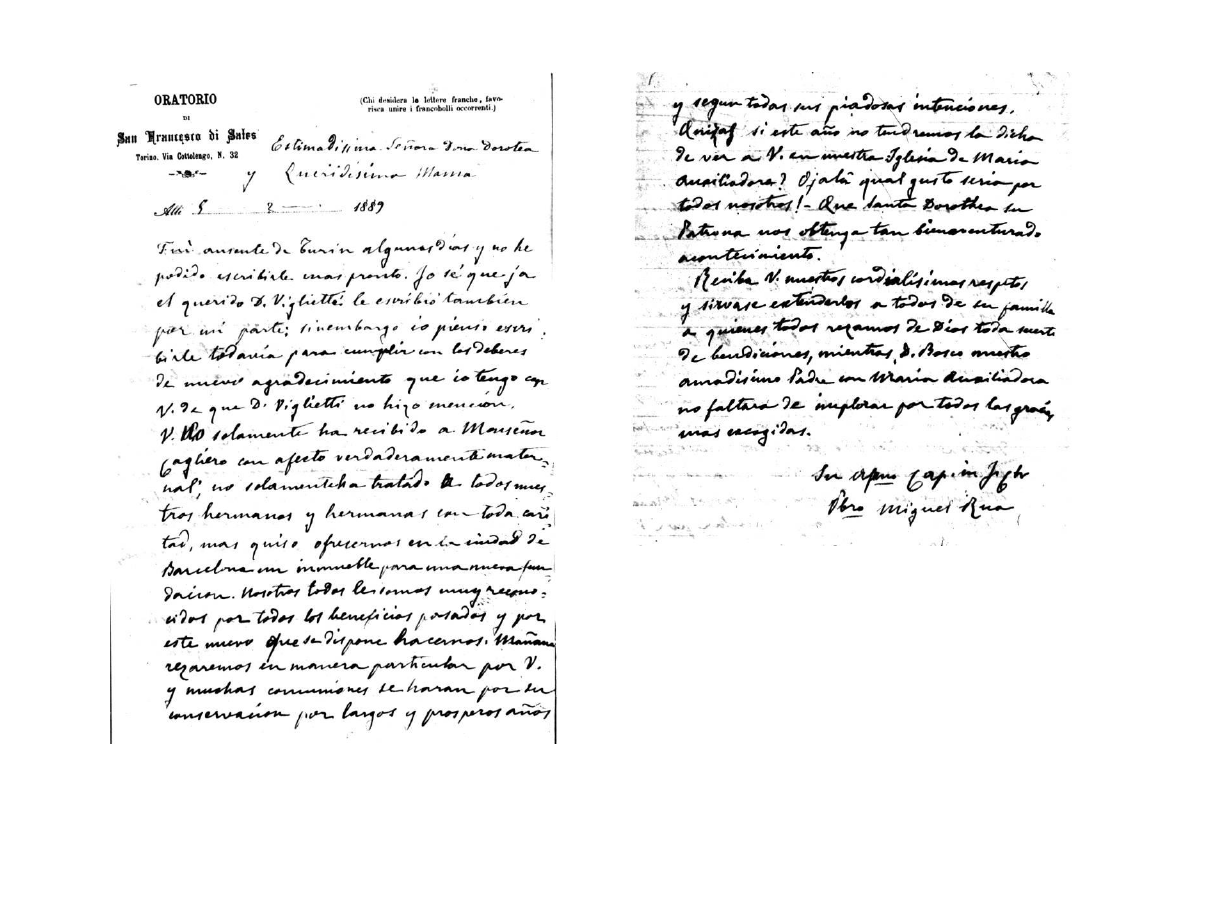 ORATORIO
DI
San Francesco di Sales
Torino. Via Cottolengo, N. 32
(Chi desidera le lettere franche, favo-
risca unire i francobolli occorrenti.)
Estimadissima Señora Dona Dorotea
y Queridisima Mama
Alli 5 2 1889
Fui ausente de Turin algunos dias y no he
podido escribirle mas pronto. Jo sé que ja
el querido D. Viglietti le escribió tambien
por mi parte; sinembargo io pienso escri-
birle todavia para cumplir con los deberes
de nuevo agradecimiento que io tengo con
V. de que D. Viglietti no hizo mención.
V. No solamente ha recibido a Monseñor
Cagliero con afecto verdaderamente mater-
nal, no solamente ha tratado a todos nues-
tros hermanos y hermanas con toda cari
tad, mas quiso ofresernos en la ciudad de
Barcelona un inmueble para una nueva fun
dacion. Nosotros todos le somos muy recono-
cidos por todos los beneficios pasados y por
este nuevo que se dispone hacernos. Mañana
rezaremos en manera particular por V.
y muchas comuniones se haran por su
conservacion por largos y prosperos años
y segun todas sus piadosas intenciones.
Quizas si este año no tendremos la dicha
de ver a V. en nuestra Iglesia de Maria
Auxiliadora? Ojalà qual gusto seria por
todos nosotros! - Que santa Dorothea su
Patrona nos obtenga tan bienaventurado
acontecimiento.
Reciba V. nuestros cordialísimos respetos
y sirvase extenderlos a todos de su familla
a quienes todos rezamos de Dios toda suerte
de bendiciones, mientras D. Bosco nuestro
amadisimo Padre con Maria Auxiliadora
no faltara de implorar por todos las gracias
mas escogidas.
Su afmo Cap. in
Pbro Miguel Rua